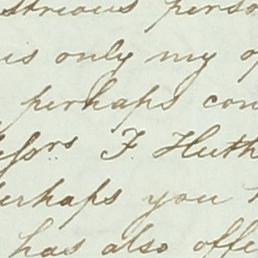 strious perso
is only my o
perhaps con
essrs F. Huth
erhaps you
has also offe